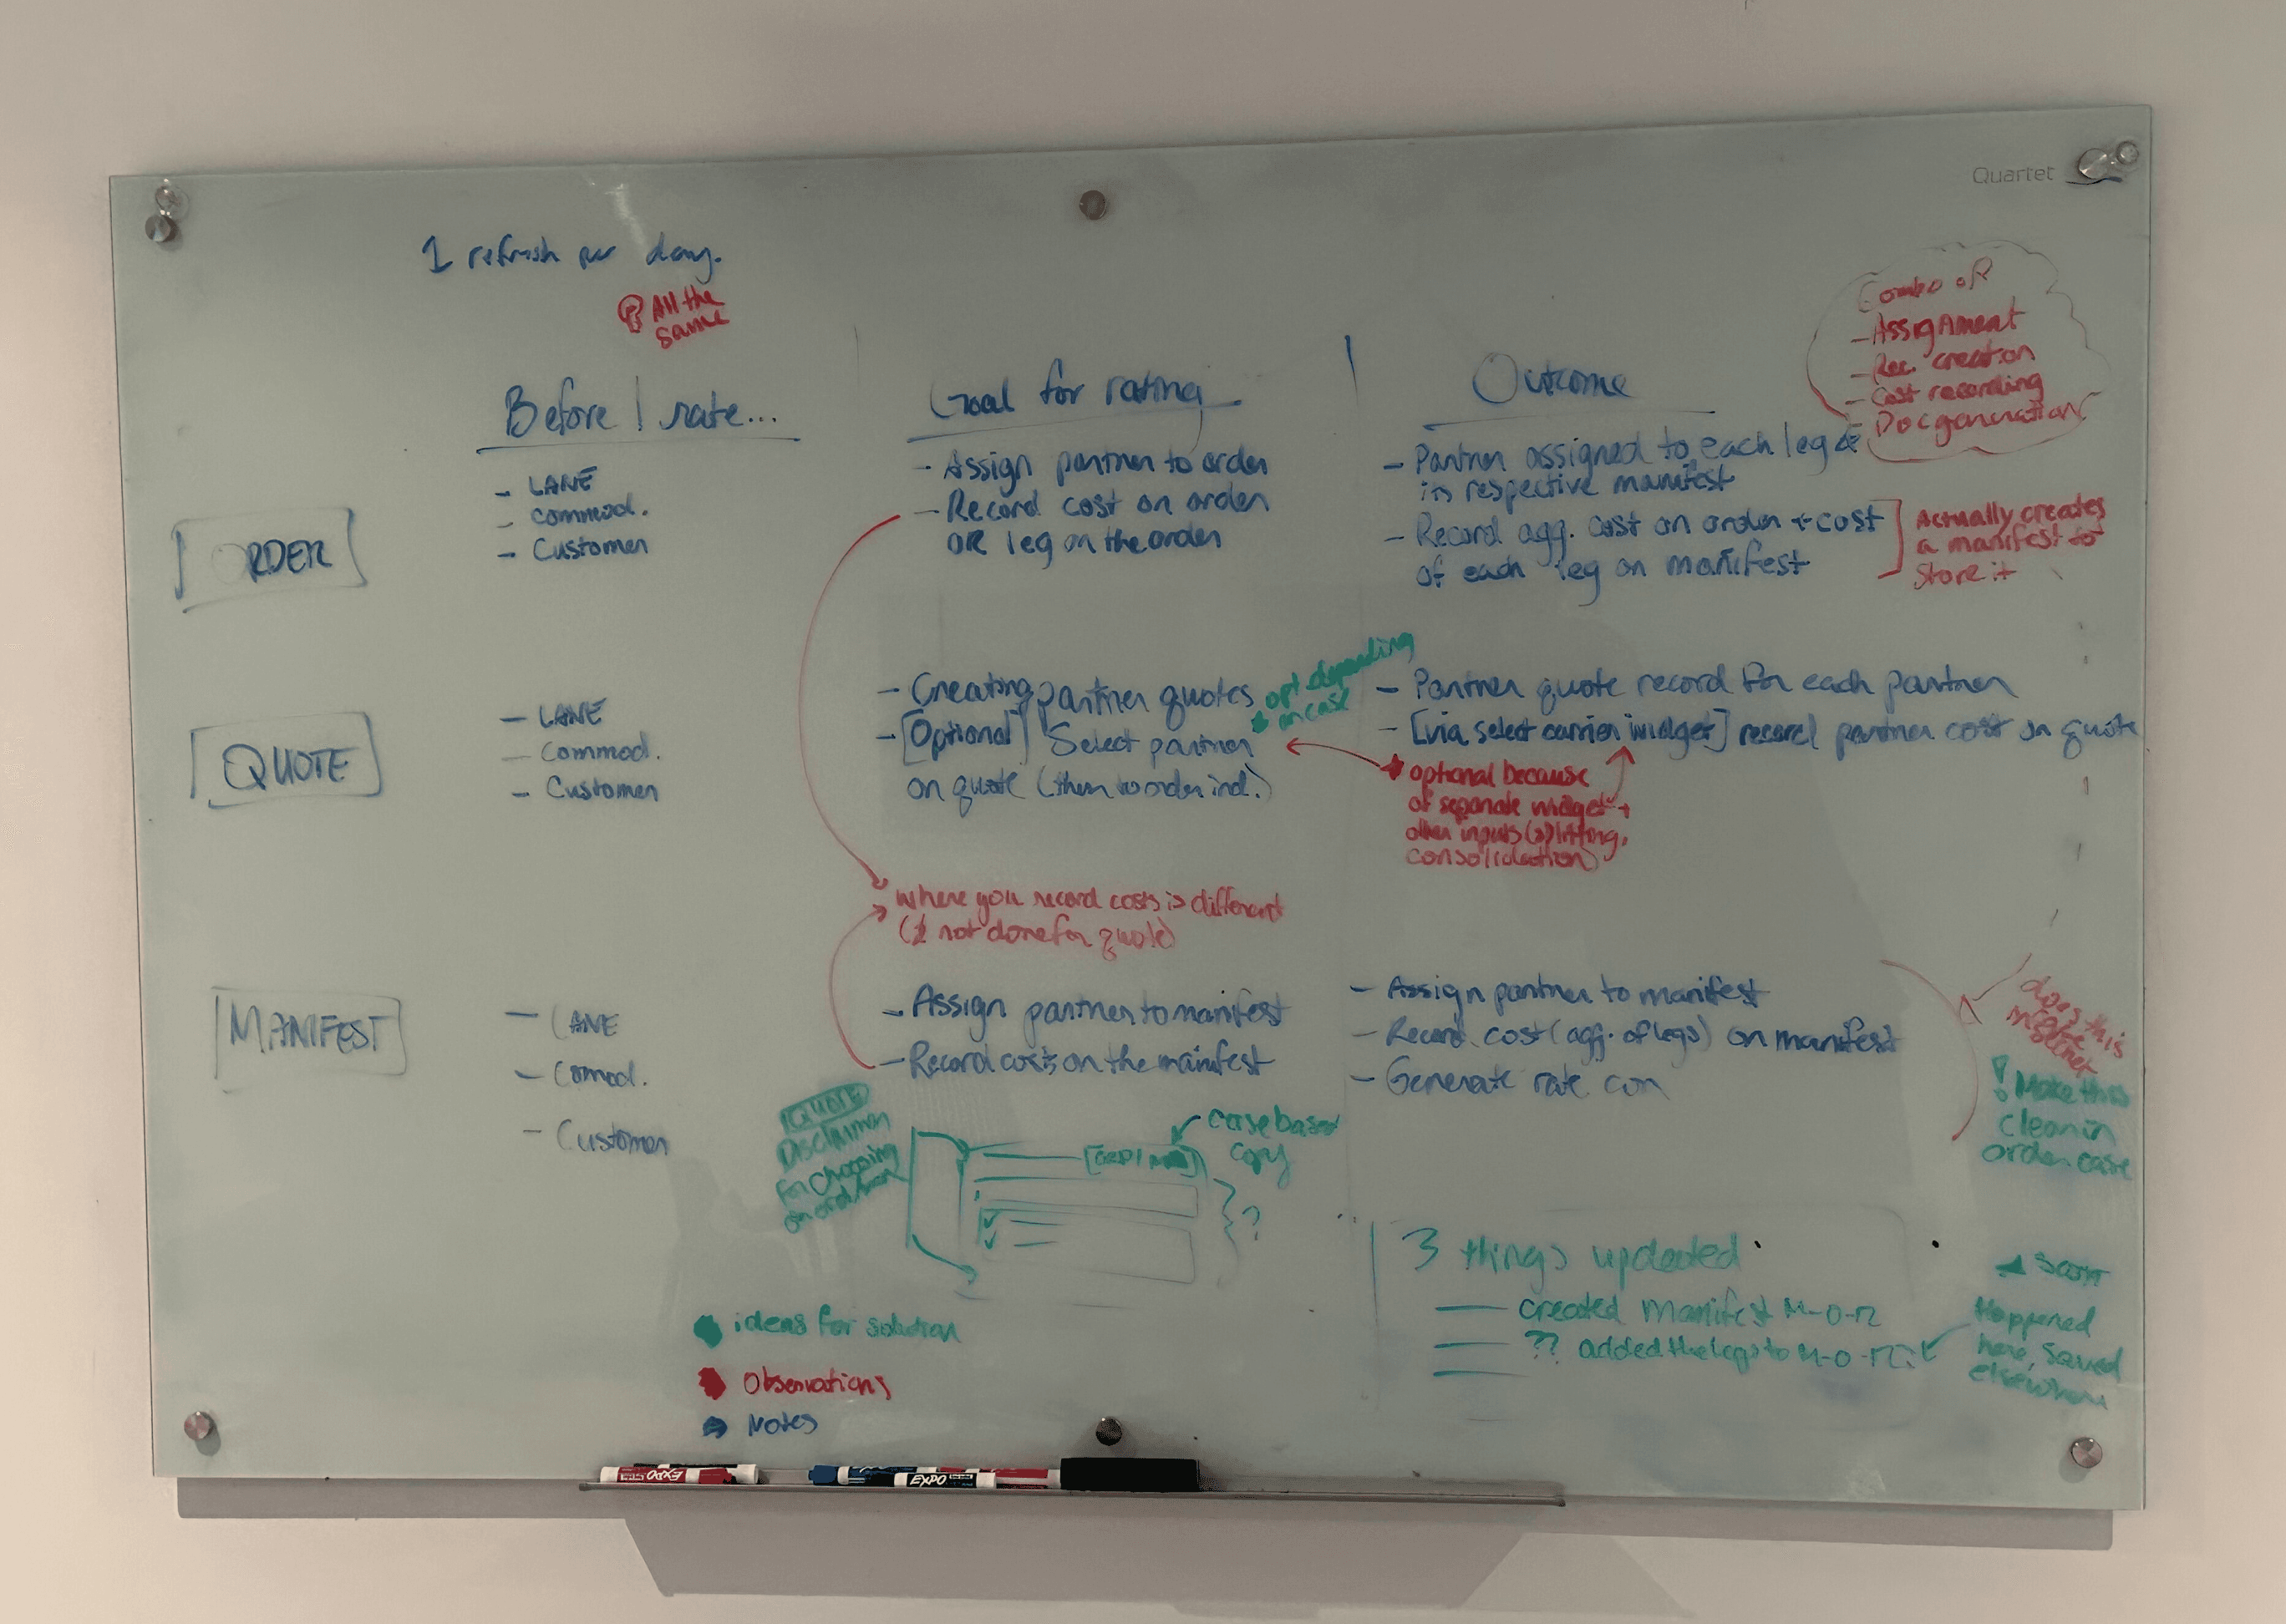 Quartet
1 refresh per day.
All the
same
Combo of
- Assignment
- Rec. creation
- Cost recording
- Doc generation
Before I rate...
Goal for rating
Outcome
ORDER
- LANE
- commod.
- Customer
- Assign partner to order
- Record cost on order
OR leg on the order
- Partner assigned to each leg &
its respective manifest
- Record agg. cost on order + cost
of each leg on manifest
Actually creates
a manifest to
store it
QUOTE
- LANE
- Commod.
- Customer
- Creating partner quotes
- [Optional] Select partner
on quote (then to order ind.)
opt. depending
on case
- Partner quote record for each partner
- [via select carrier widget] record partner cost on quote
optional because
of separate widget +
other inputs (splitting,
consolidation)
where you record costs is different
(& not done for quote)
MANIFEST
- LANE
- Comod.
- Customer
- Assign partner to manifest
- Record costs on the manifest
- Assign partner to manifest
- Record cost (agg. of legs) on manifest
- Generate rate con
does this
make
! Make this
clean in
order case
QUOTE
Disclaimer
for choosing
on
case based
copy
?
3 things updated
created manifest M-O-R
?? added the legs to M-O-R
Happened
here, saved
elsewhere
ideas for solution
Observations
Notes
EXPO
EXPO